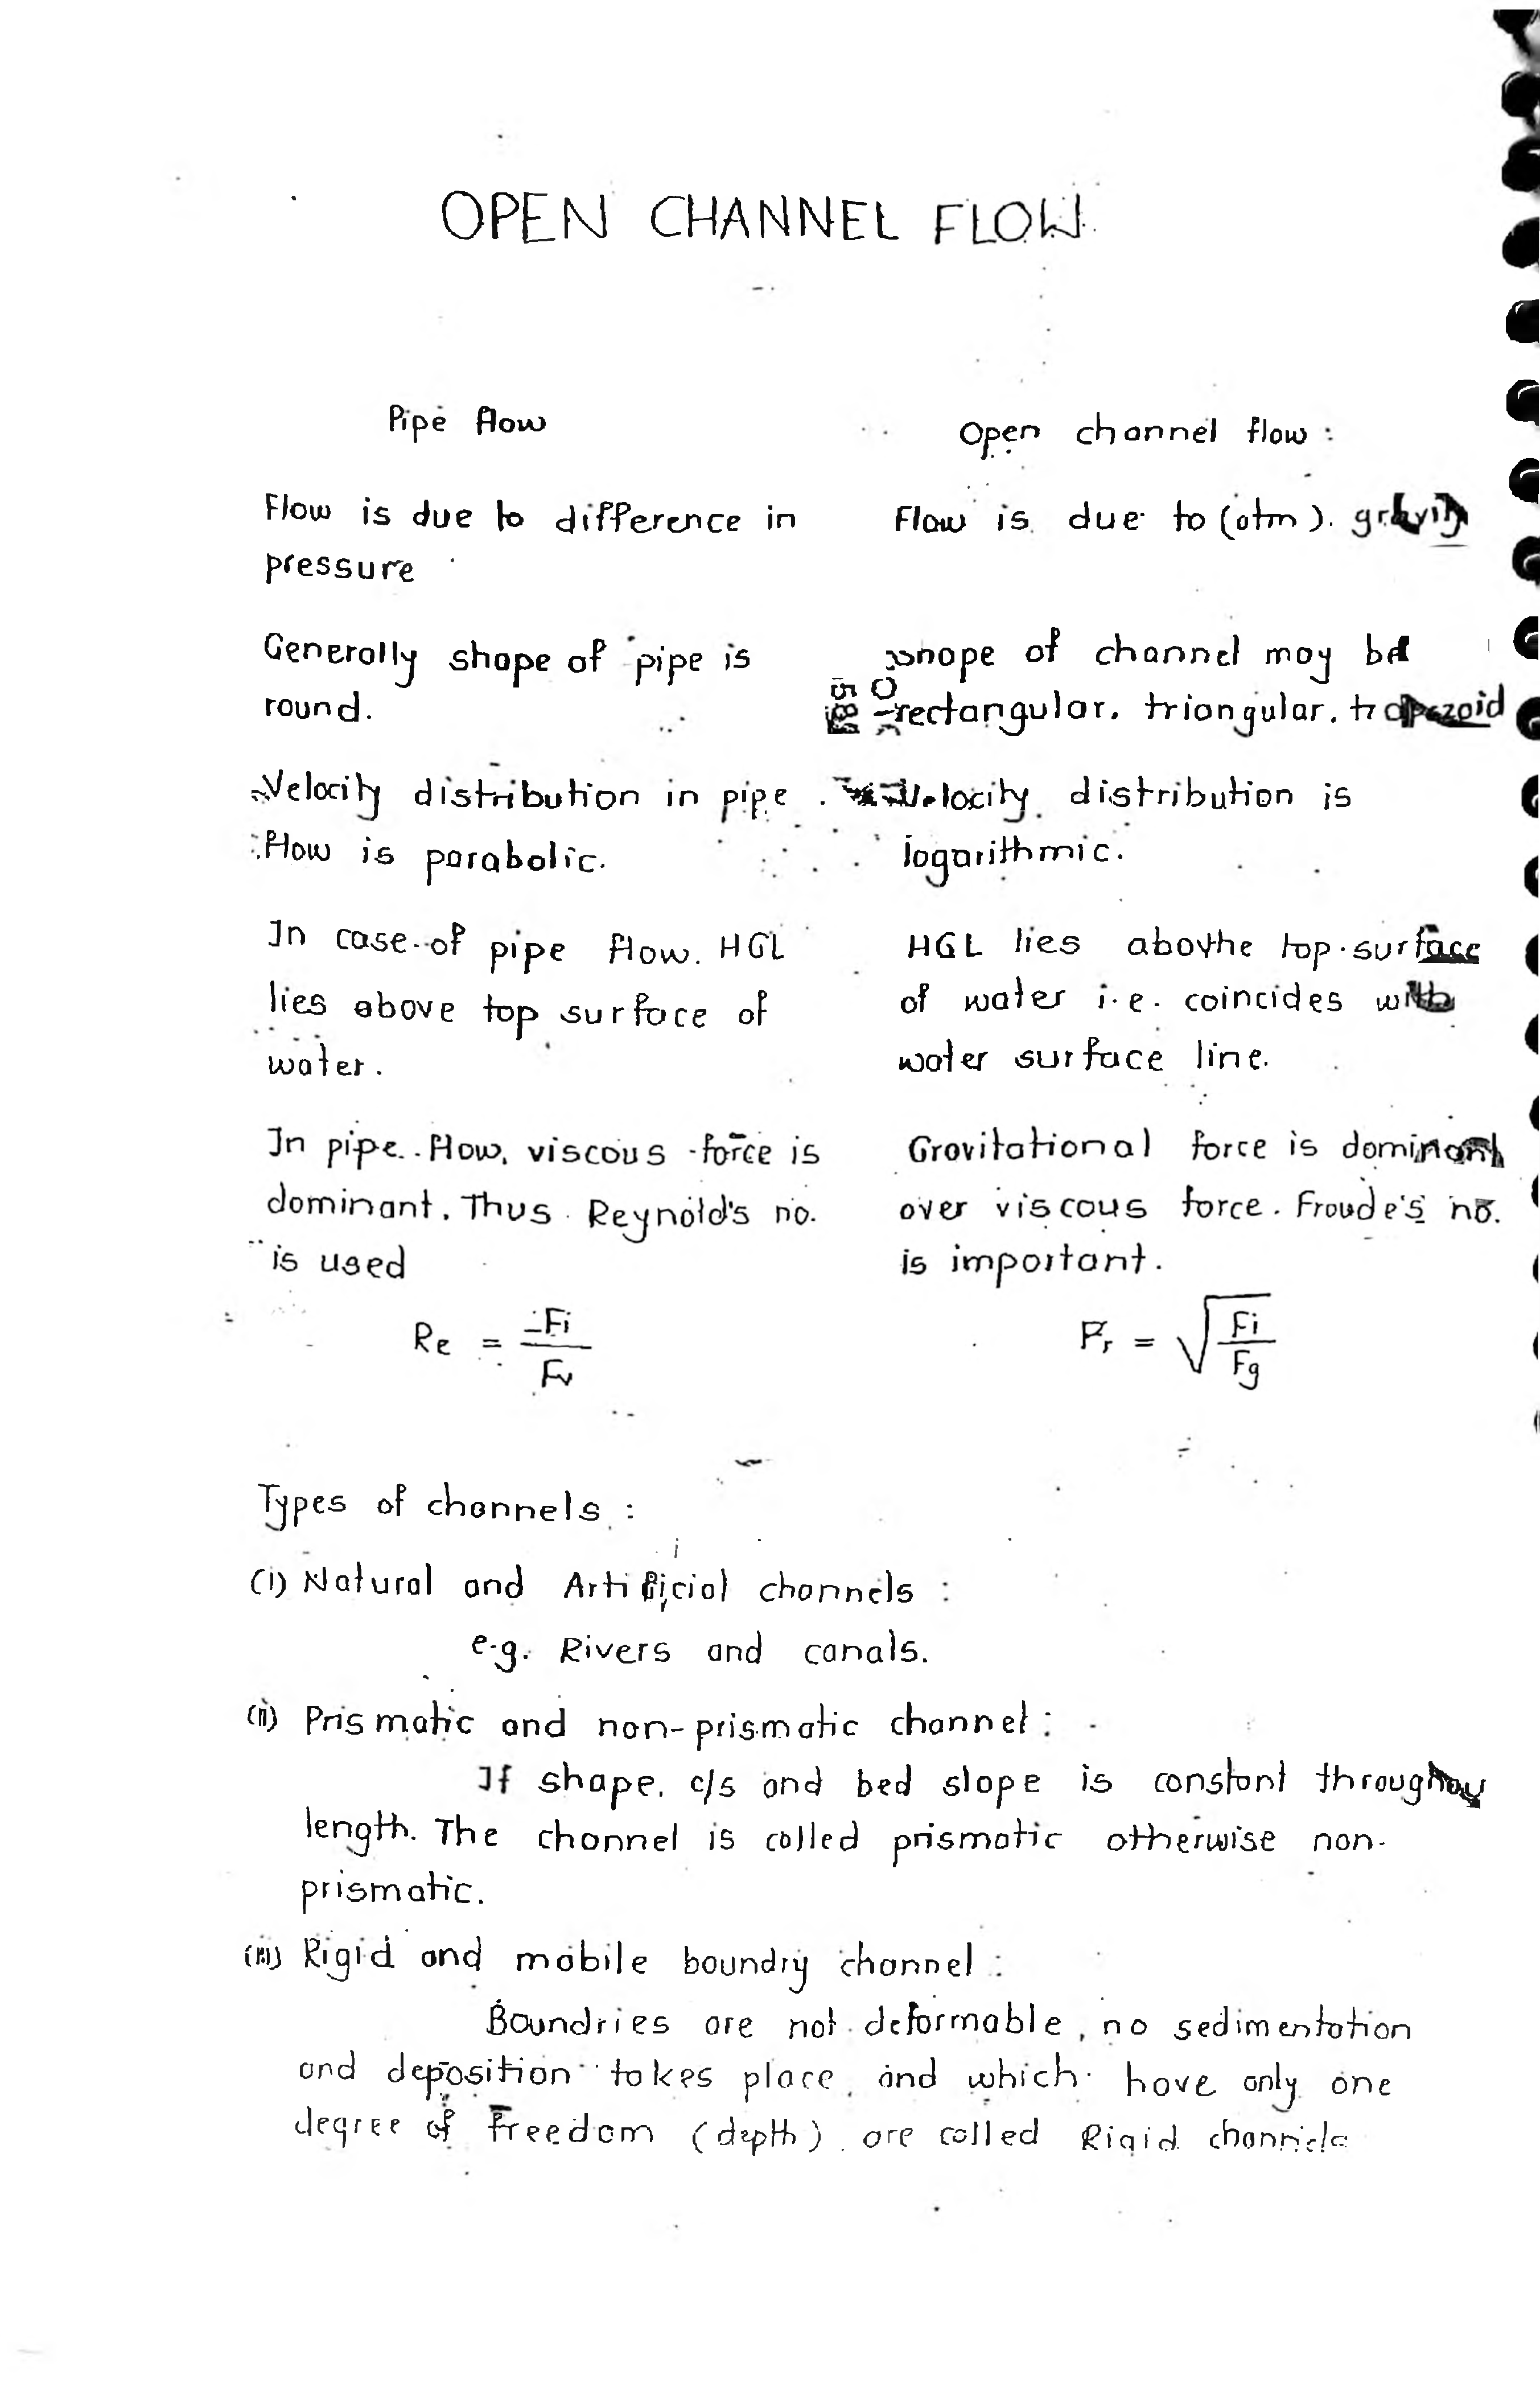 OPEN CHANNEL FLOW
Pipe flow
Flow is due to difference in
pressure
Generally shape of pipe is
round.
Velocity distribution in pipe
flow is parabolic.
In case of pipe flow. HGL
lies above top surface of
water.
In pipe flow, viscous force is
dominant. Thus Reynold's no.
is used
Re = Fi / Fv
Open channel flow :
Flow is due to (atm). gravity
shape of channel may be
rectangular, triangular, trapezoid
Velocity distribution is
logarithmic.
HGL lies abovthe top surface
of water i.e. coincides with
water surface line.
Gravitational force is dominant
over viscous force. Froude's no.
is important.
Fr = √(Fi / Fg)
Types of channels :
(i) Natural and Artificial channels :
e.g. Rivers and canals.
(ii) Prismatic and non-prismatic channel :
If shape, c/s and bed slope is constant throughou
length. The channel is called prismatic otherwise non-
prismatic.
(iii) Rigid and mobile boundry channel :
Boundries are not deformable, no sedimentation
and deposition takes place and which have only one
degree of freedom (depth) are called Rigid channels